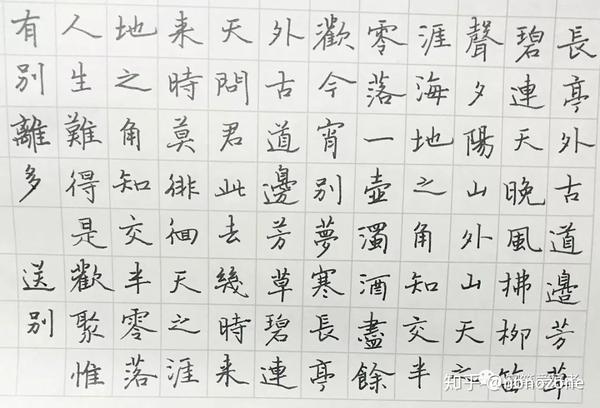 長亭外古道邊芳草
碧連天晚風拂柳笛
聲夕陽山外山天之
涯海地之角知交半
零落一壺濁酒盡餘
歡今宵別夢寒長亭
外古道邊芳草碧連
天問君此去幾時來
來時莫徘徊天之涯
地之角知交半零落
人生難得是歡聚惟
有別離多
送別
知乎